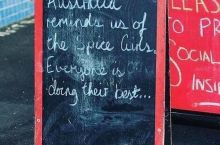 Australia
reminds us of
the Spice Girls.
Everyone is
doing their best...
TO PR
SOCIAL
INSI